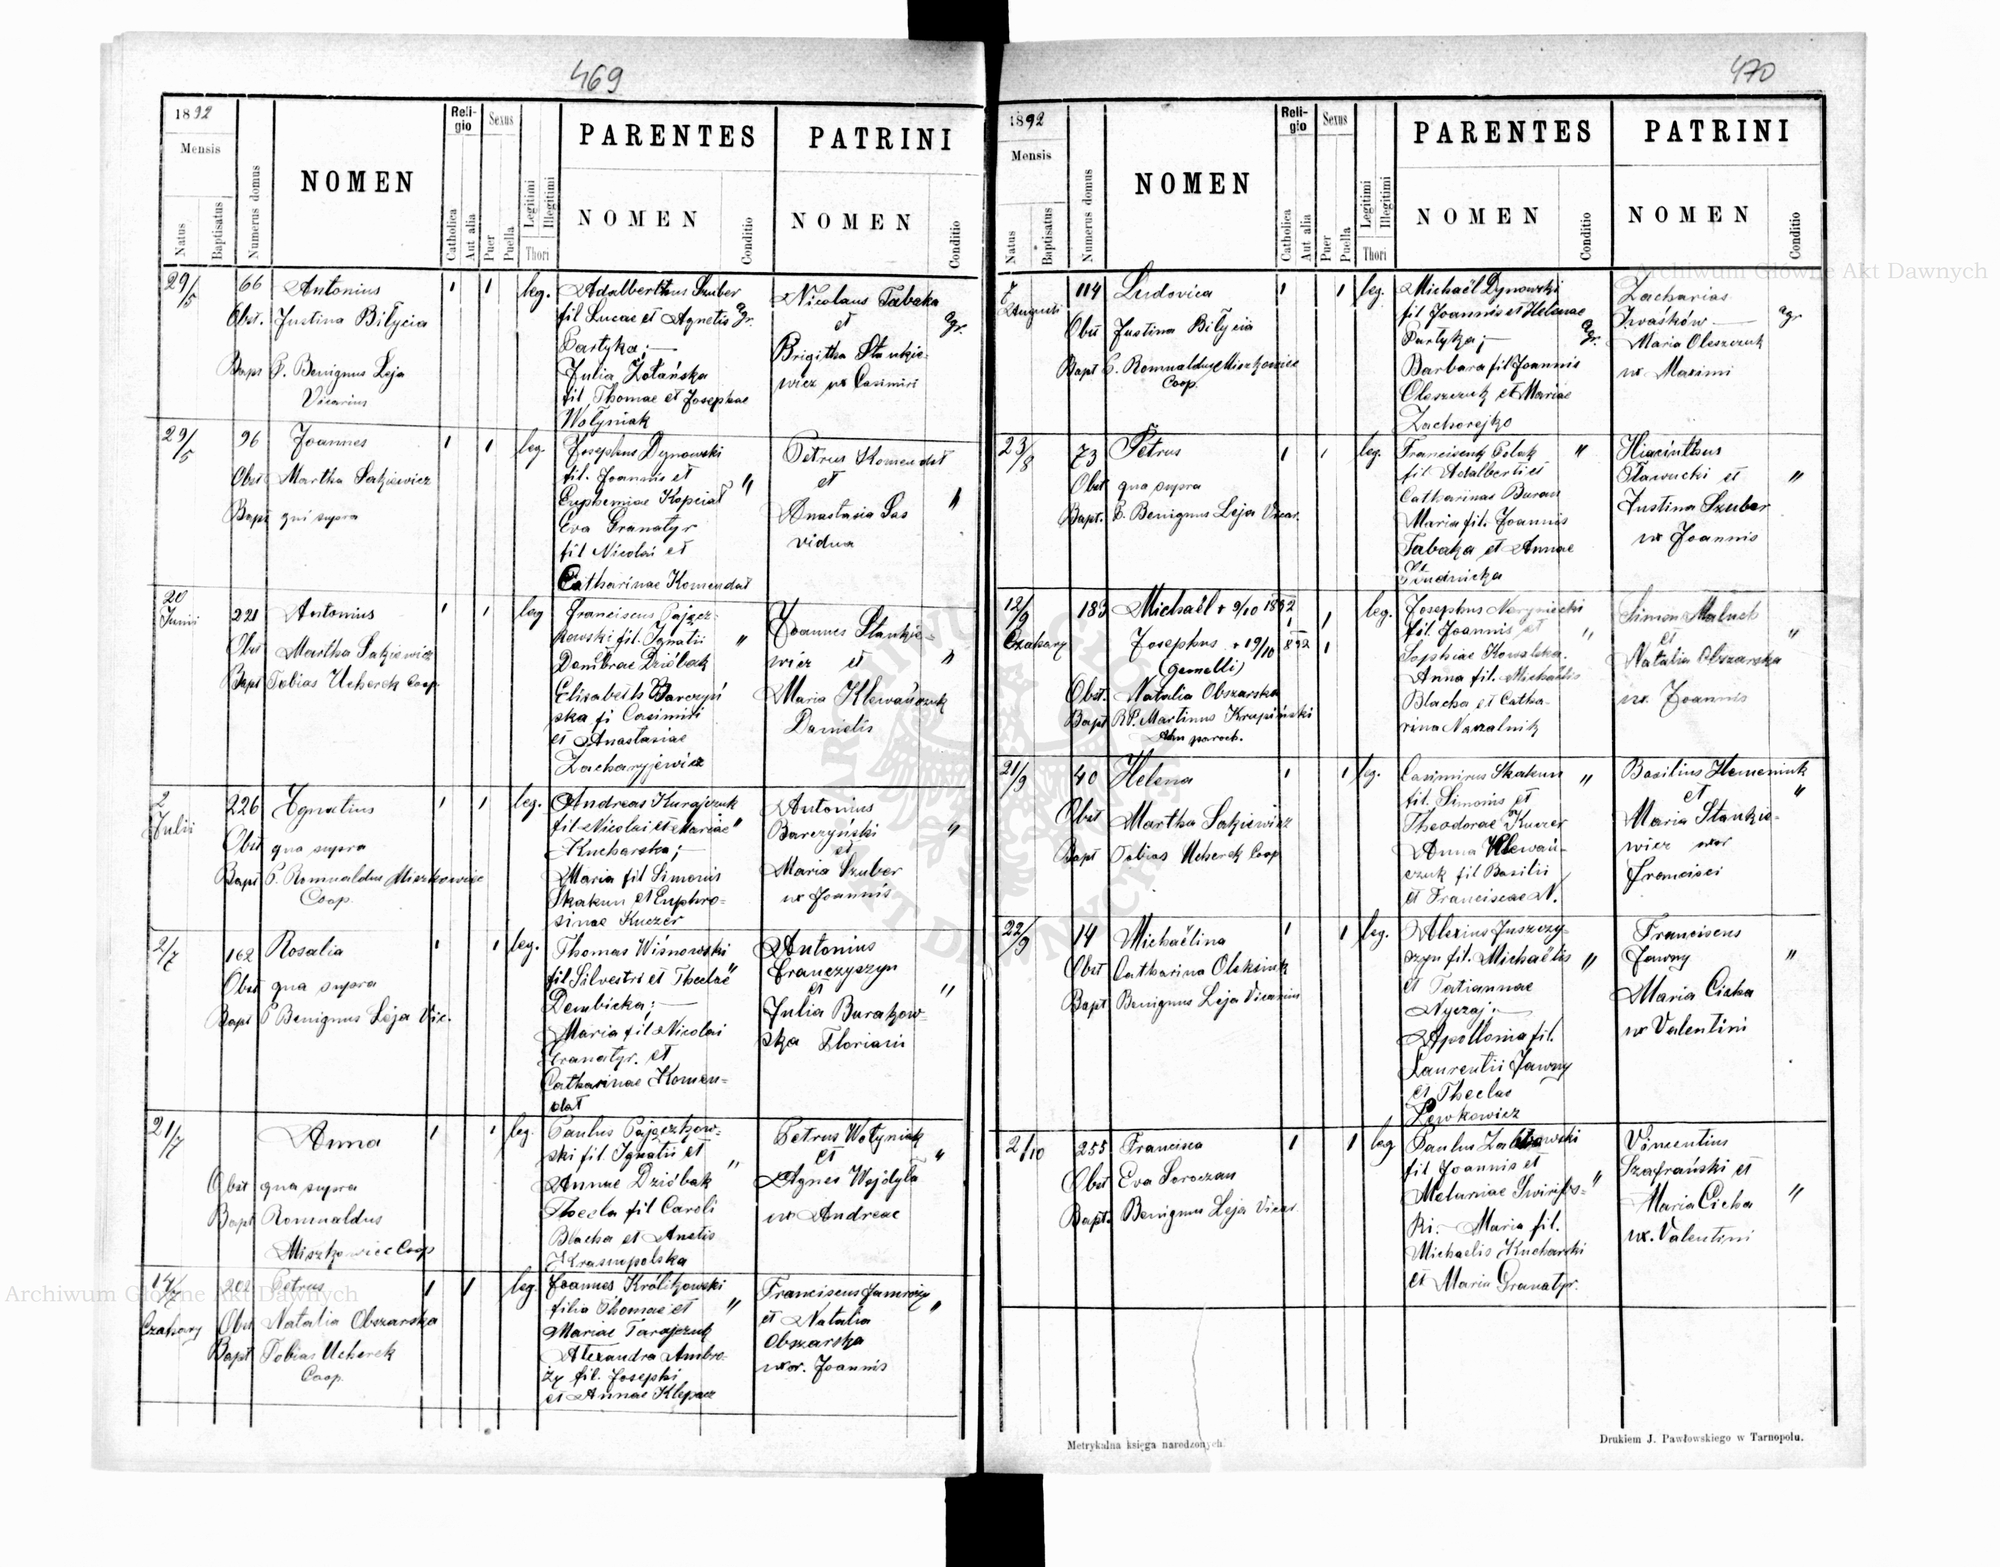 469
1892
Mensis
Natus
Baptisatus
Numerus domus
NOMEN
Religio
Catholica
Aut alia
Sexus
Puer
Puella
Legitimi
Illegitimi
Thori
PARENTES
NOMEN
Conditio
PATRINI
NOMEN
Conditio
29/5
66 Antonius
Obst. Justina Bilycia
Bapt P. Benignus Leja
Vicarius
leg.
Adalberthus Szuber
fil Lucae et Agnetis agr.
Partyka;
Julia Zołańska
fil Thomae et Josephae
Wołyniak
Nicolaus Tabaka
et agr.
Brigitha Stankie-
wicz ux Casimiri
29/5
96 Joannes
Obst Martha Sakiewicz
Bapt qui supra
leg.
Josephus Dynowski
fil. Joannis et
Euphemiae Kopciał "
Eva Granatyr
fil Nicolai et
Catharinae Komendat
Petrus Komendat
et
Anastasia Sas "
vidua
20
Junii
221 Antonius
Obst Martha Sakiewicz
Bapt Tobias Ucherek Coop.
leg
Franciscus Pającz-
kowski fil. Ignatii "
Dzióbak
Elisabeth Barczyń
ska fi Casimiri
et Anastasiae
Zacharyjewicz
Joannes Stankie-
wicz et "
Maria Klewańczuk
Danielis
2
Julii
226 Ignatius
Obst qua supra
Bapt P. Romualdus Miszkowiec
Coop.
leg.
Andreas Kurajczuk
fil Nicolai et Mariae "
Kucharska;
Maria fil Simonis
Skakun et Euphro-
sinae Kuczer
Antonius
Barczyński "
et
Maria Szuber
ux Joannis
2/7
162 Rosalia
Obst qua supra
Bapt P Benignus Leja Vic.
leg.
Thomas Wiśnowski
fil Silvestri et Theclae "
Dembicka;
Maria fil Nicolai
Granatyr. et
Catharinae Komen-
dat
Antonius
Franczyszyn
et "
Julia Burakow-
ska Floriani
21/7
Anna
Obst qua supra
Bapt Romualdus
Miszkowiec Coop
leg.
Paulus Pajączkow-
ski fil. Ignatii et
Annae Dzióbak "
Thecla fil Caroli
Blacha et Anetis
Krasnopolska
Petrus Wołyniak
et "
Agnes Wojdyła
ux Andreae
14/7
Czahary
202 Petrus
Obst Natalia Obszarska
Bapt Tobias Ucherek
Coop.
leg.
Joannes Królikowski
filia Thomae et "
Mariae Tarajczuk
Alexandra Ambro-
ży fil. Josephi
et Annae Klepacz
Franciscus Jamroży "
et Natalia
Obszarska
uxor. Joannis
470
1892
Mensis
Natus
Baptisatus
Numerus domus
NOMEN
Religio
Catholica
Aut alia
Sexus
Puer
Puella
Legitimi
Illegitimi
Thori
PARENTES
NOMEN
Conditio
PATRINI
NOMEN
Conditio
7
Augusti
114 Ludovica
Obst Justina Bilycia
Bapt P. Romualdus Miszkowiec
Coop.
leg.
Michaël Dynowski
fil Joannis et Helenae
Partyka; agr.
Barbara fil Joannis
Oleszczuk et Mariae
Zachorejko
Zacharias
Iwaśków agr.
Maria Oleszczuk
ux. Maximi
23/8
73 Petrus
Obst qua supra
Bapt. P. Benignus Leja Vicar.
leg.
Franciscus Polak "
fil Adalberti et
Catharinae Buran
Maria fil. Joannis
Tabaka et Annae
Studnicka
Hiacinthus
Sławucki et "
Justina Szuber
ux Joannis
12/9
Czahary
183 Michaël + 9/10 1892
Josephus + 19/10 892
(gemelli)
Obst. Natalia Obszarska
Bapt RP. Martinus Krupiński
Adm paroch.
leg.
Josephus Naryniecki
fil. Joannis et "
Sophiae Kowalska.
Anna fil. Michaëlis
Blacha et Catha-
rina Nazalnik
Simon Maluch
et "
Natalia Obszarska
ux. Joannis
21/9
40 Helena
Obst Martha Sakiewicz
Bapt Tobias Ucherek Coop
leg.
Casimirus Skakun "
fil. Simonis et
Theodorae Kuczer
Anna Klewań-
czuk fil Basilii
et Franciscae N.
Basilius Hemeniuk
et "
Maria Stankie-
wicz uxor
Francisci
22/9
14 Michaëlina
Obst Catharina Oleksiuk
Bapt Benignus Leja Vicarius
leg.
Alexius Juszczy-
szyn fil. Michaëlis "
et Tatiannae
Nyczaj;
Apollonia fil.
Laurentii Jawny
et Theclae
Lewkowicz
Franciscus
Jawny "
Maria Cicha
ux Valentini
2/10
255 Francisca
Obst Eva Soroczan
Bapt. Benignus Leja Vicar.
leg
Paulus
fil Joannis et
"
Maria fil.
Michaelis Kucharski
et Maria Granatyr.
Vincentius
Szafrański et
Maria Cicha "
ux. Valentini
Metrykalna księga narodzonych.
Drukiem J. Pawłowskiego w Tarnopolu.
Archiwum Główne Akt Dawnych
Archiwum Główne Akt Dawnych